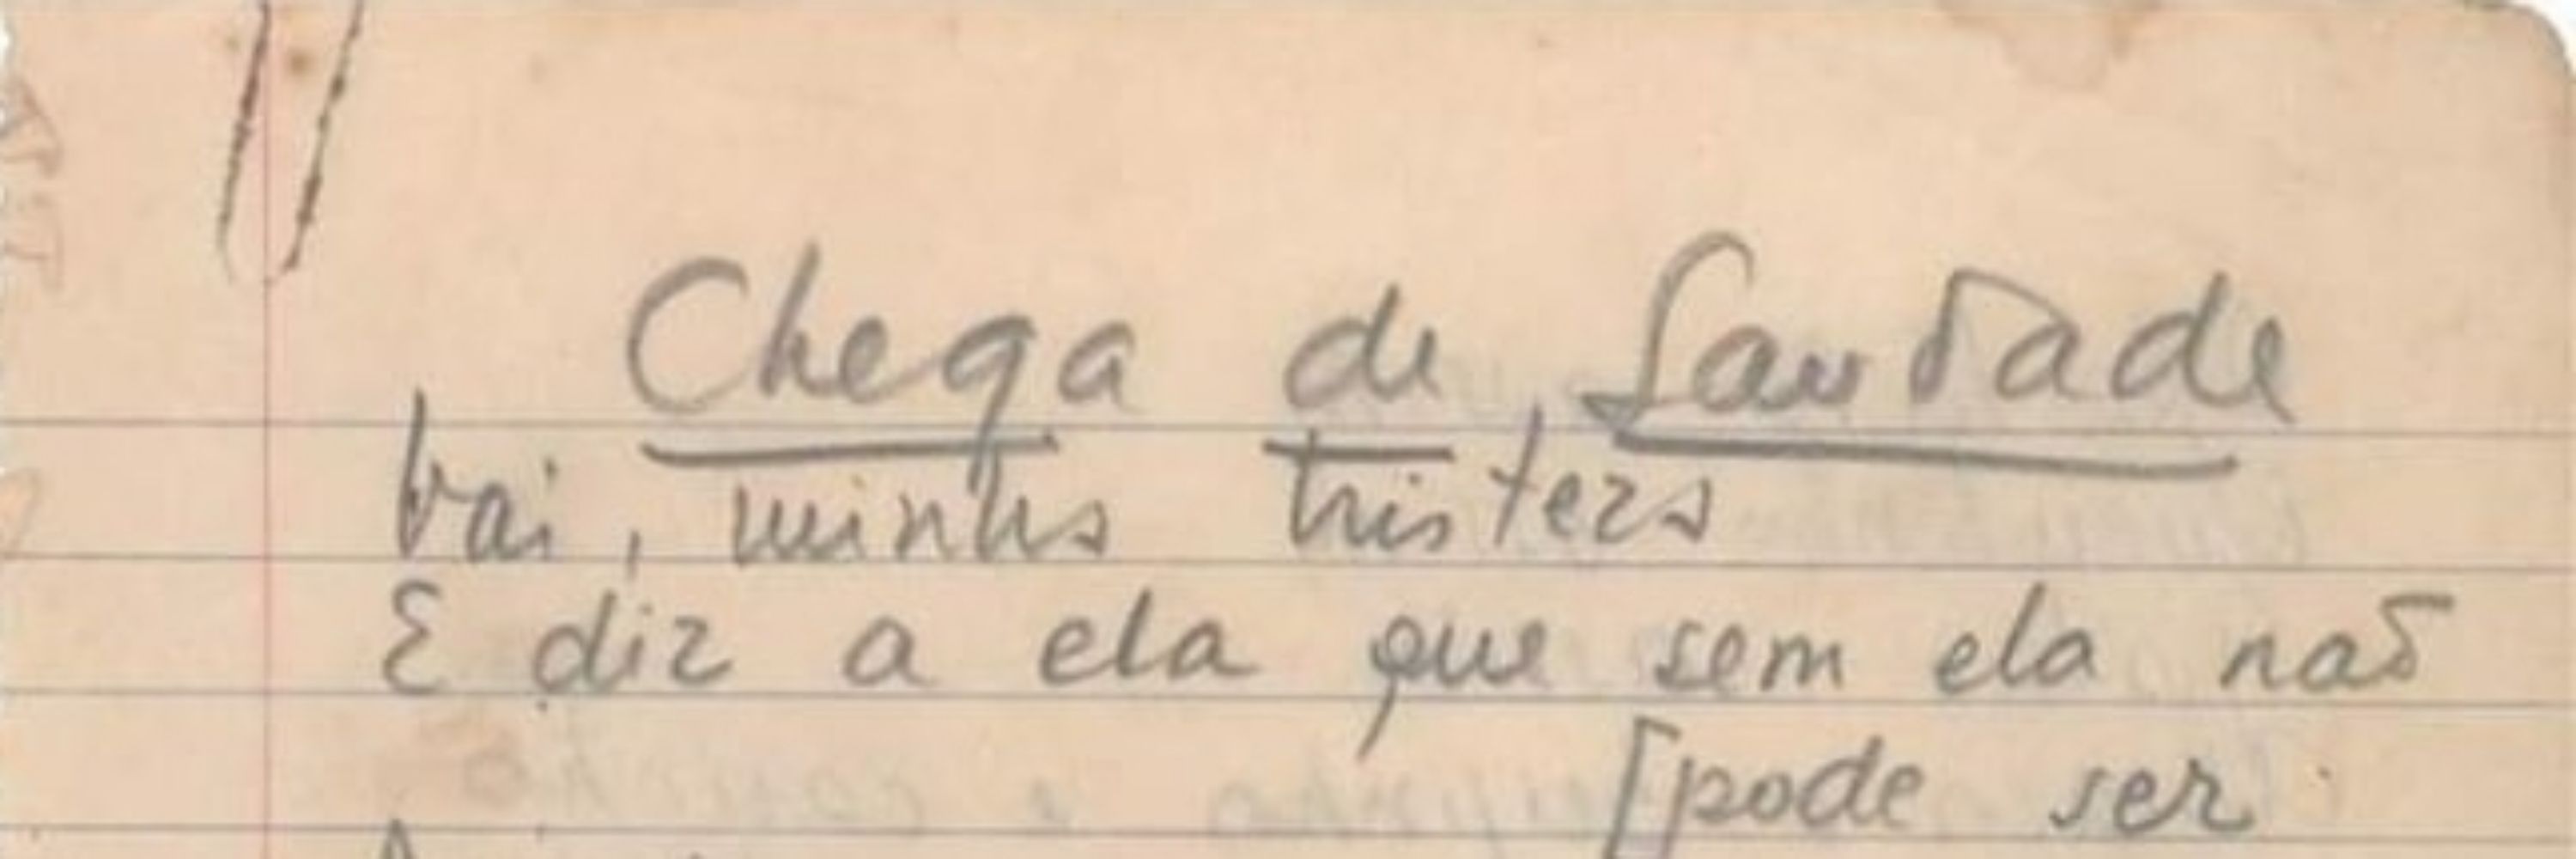 Chega de Saudade
Vai, minha tristeza
E diz a ela que sem ela não
[pode ser